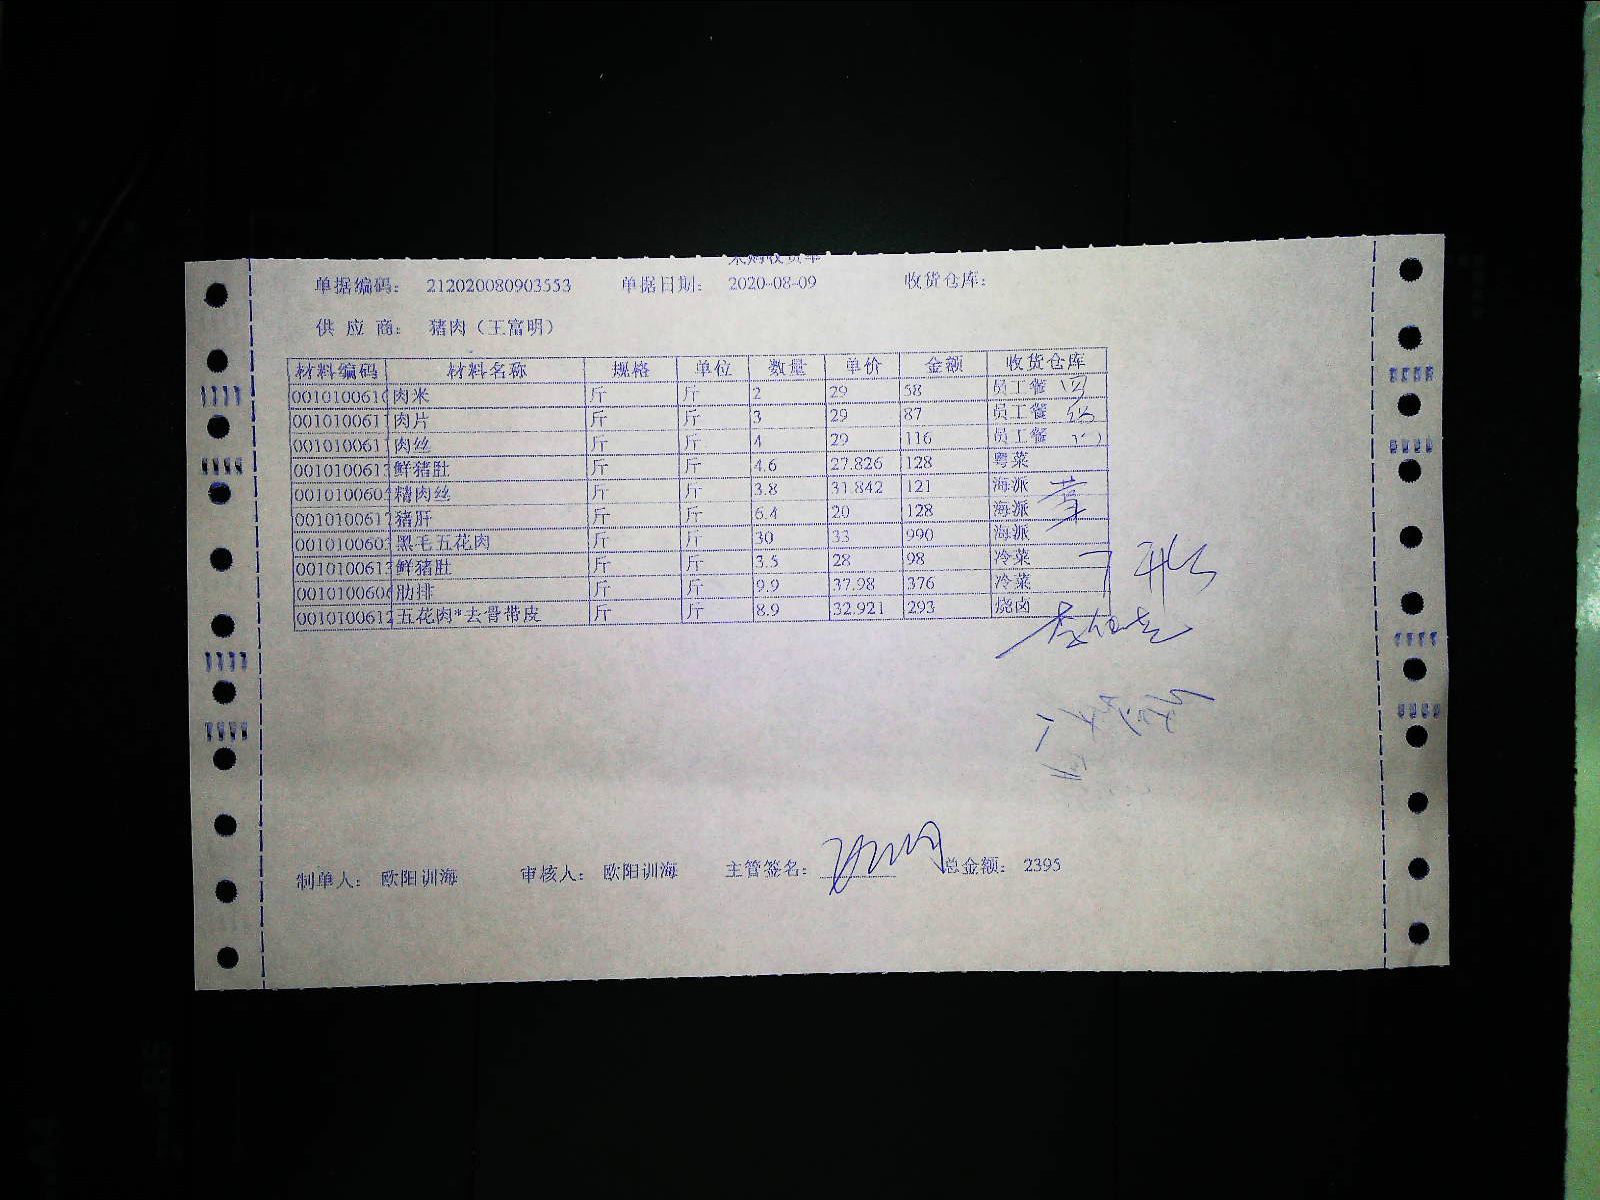 采购收货单
单据编码： 212020080903553 单据日期： 2020-08-09 收货仓库：
供 应 商： 猪肉（王富明）
材料编码 材料名称 规格 单位 数量 单价 金额 收货仓库
001010061 肉米 斤 斤 2 29 58 员工餐
001010061 肉片 斤 斤 3 29 87 员工餐
001010061 肉丝 斤 斤 4 29 116 员工餐
001010061 鲜猪肚 斤 斤 4.6 27.826 128 粤菜
001010060 精肉丝 斤 斤 3.8 31.842 121 海派
001010061 猪肝 斤 斤 6.4 20 128 海派
001010060 黑毛五花肉 斤 斤 30 33 990 海派
001010061 鲜猪肚 斤 斤 3.5 28 98 冷菜
001010060 肋排 斤 斤 9.9 37.98 376 冷菜
001010061 五花肉*去骨带皮 斤 斤 8.9 32.921 293 烧卤
制单人： 欧阳训海 审核人： 欧阳训海 主管签名： 总金额： 2395